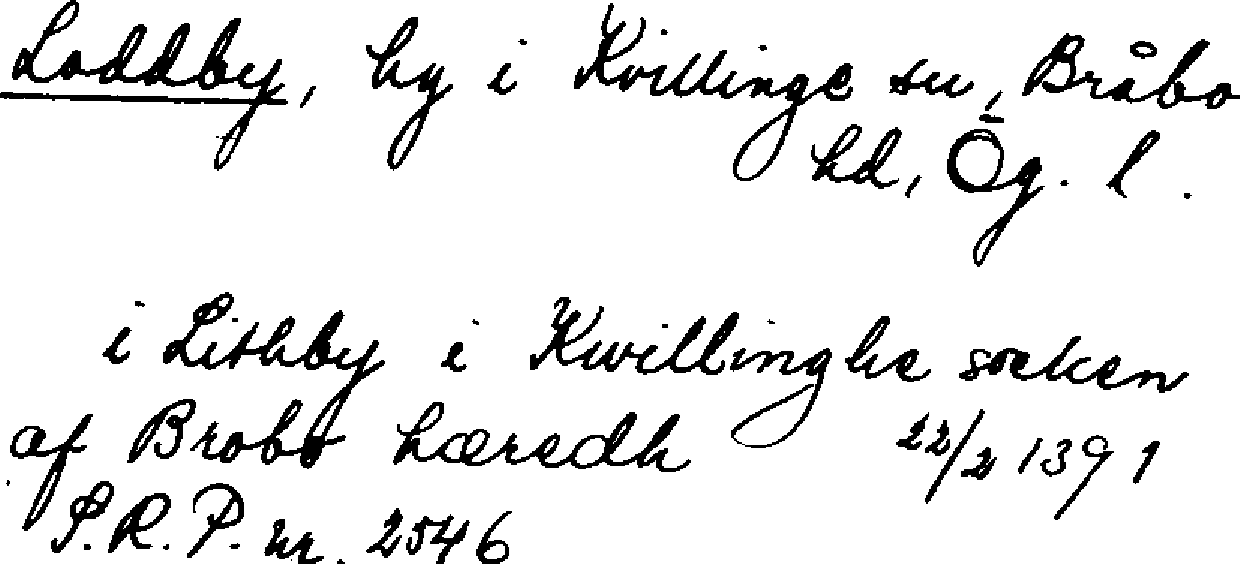 Loddby, by i Kvillinge sn, Bråbo
hd, Ög. l.
i Lithby i Kwillinghe soeken
af Brobo hæredh 22/2 1391
S.R.P. nr. 2546